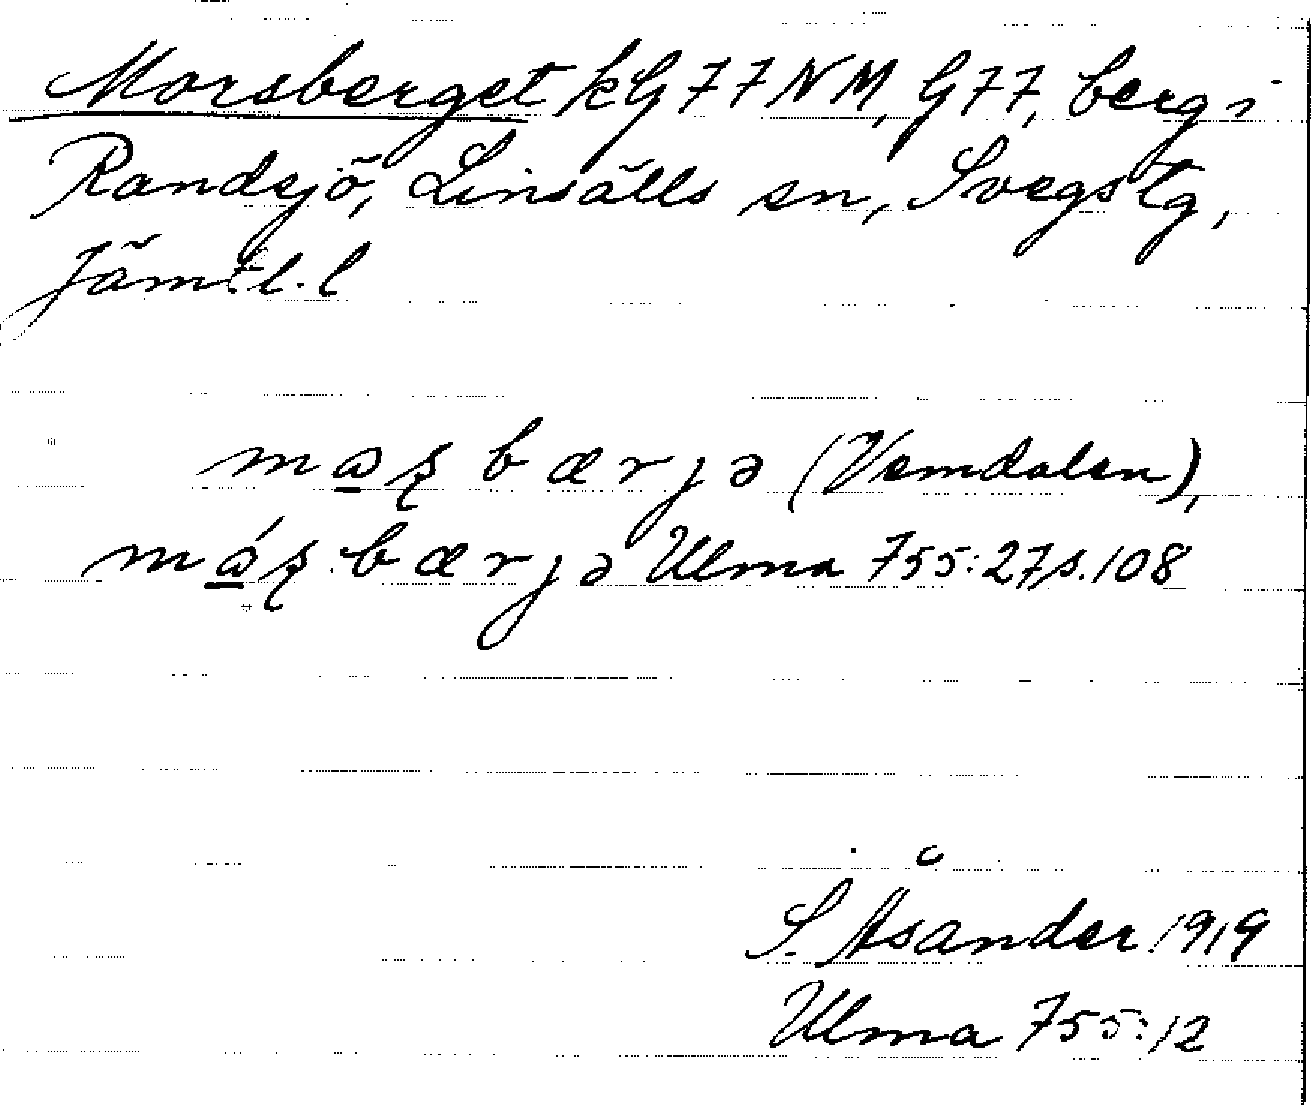 Morsberget kG77NM, G77, berg i
Randsjö, Linsälls sn, Svegs tg,
Jämtl. l
mɷʂbærjə (Vemdalen),
mɷ́ʂbærjə Ulma 755:27 s. 108
S. Åsander 1919
Ulma 755:12